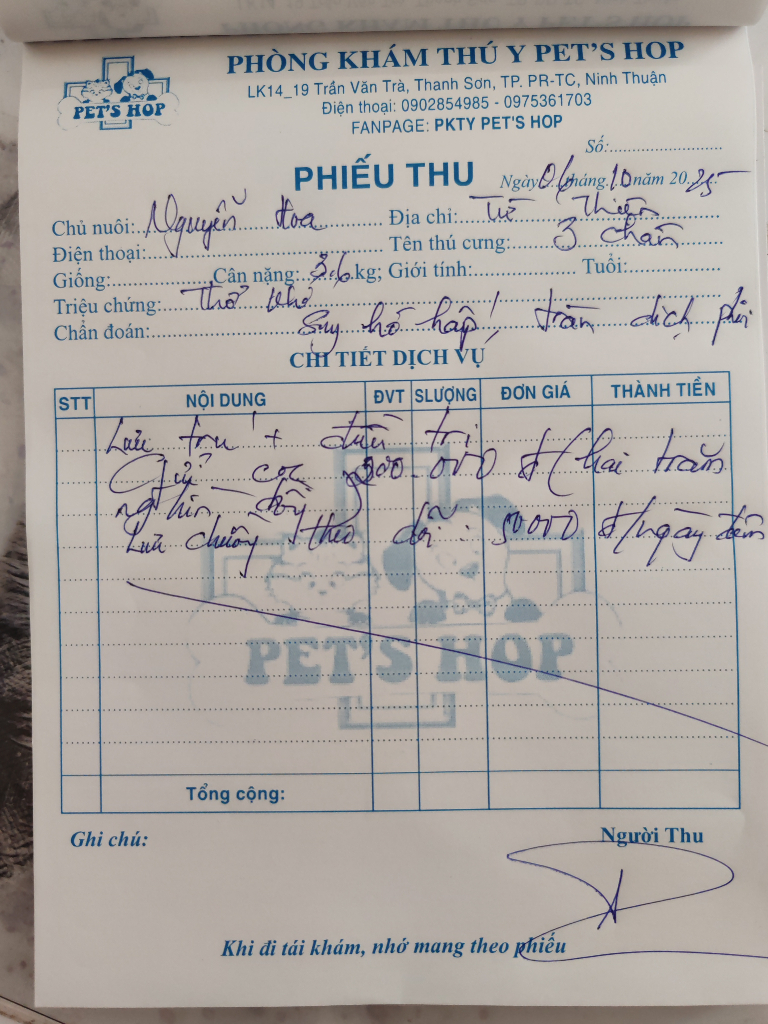 PHÒNG KHÁM THÚ Y PET'S HOP
LK14_19 Trần Văn Trà, Thanh Sơn, TP. PR-TC, Ninh Thuận
Điện thoại: 0902854985 - 0975361703
FANPAGE: PKTY PET'S HOP
PET'S HOP
Số:
PHIẾU THU
Ngày 06 tháng 10 năm 2025
Chủ nuôi: Nguyễn Hoa Địa chỉ: Từ Thiện
Điện thoại: Tên thú cưng: 3 chân
Giống: Cân nặng: 3.6 kg; Giới tính: Tuổi:
Triệu chứng: Thở khó
Chẩn đoán: Suy hô hấp! tràn dịch phổi
CHI TIẾT DỊCH VỤ
STT NỘI DUNG ĐVT SLƯỢNG ĐƠN GIÁ THÀNH TIỀN
Lưu trú + điều trị
Gửi cọc 200.000 đ (hai trăm
nghìn đồng
Lưu chuồng theo dõi: 50000 đ/ngày đêm
PET'S HOP
Tổng cộng:
Ghi chú: Người Thu
Khi đi tái khám, nhớ mang theo phiếu